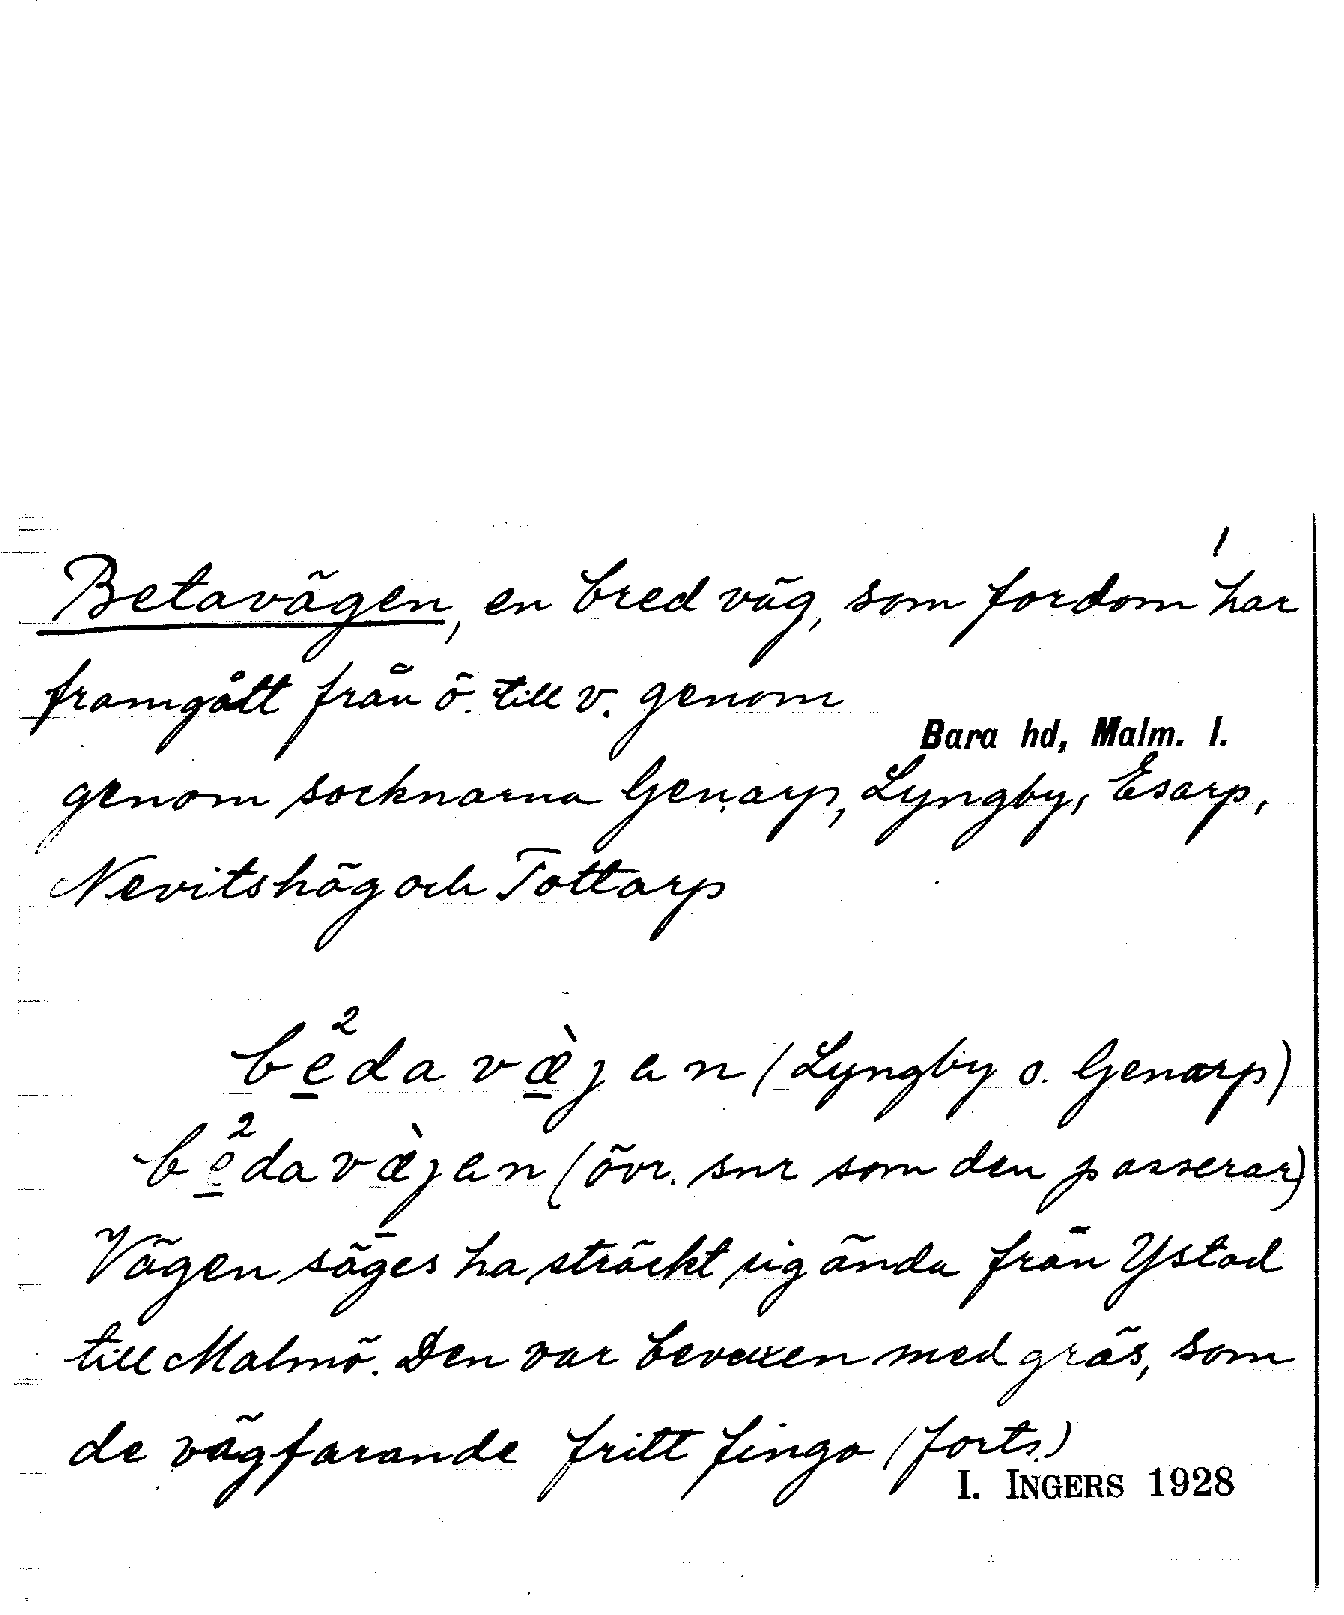 1
Betavägen, en bred väg, som fordom har
framgått från ö. till v. genom
Bara hd, Malm. l.
genom socknarna Genarp, Lyngby, Esarp,
Nevitshög och Tottarp
be̊²davæ̀jan (Lyngby o. Genarp)
be̊²davæ̀jan (övr. snr som den passerar)
Vägen säges ha sträckt sig ända från Ystad
till Malmö. Den var bevuxen med gräs, som
de vägfarande fritt fingo (forts.)
I. INGERS 1928